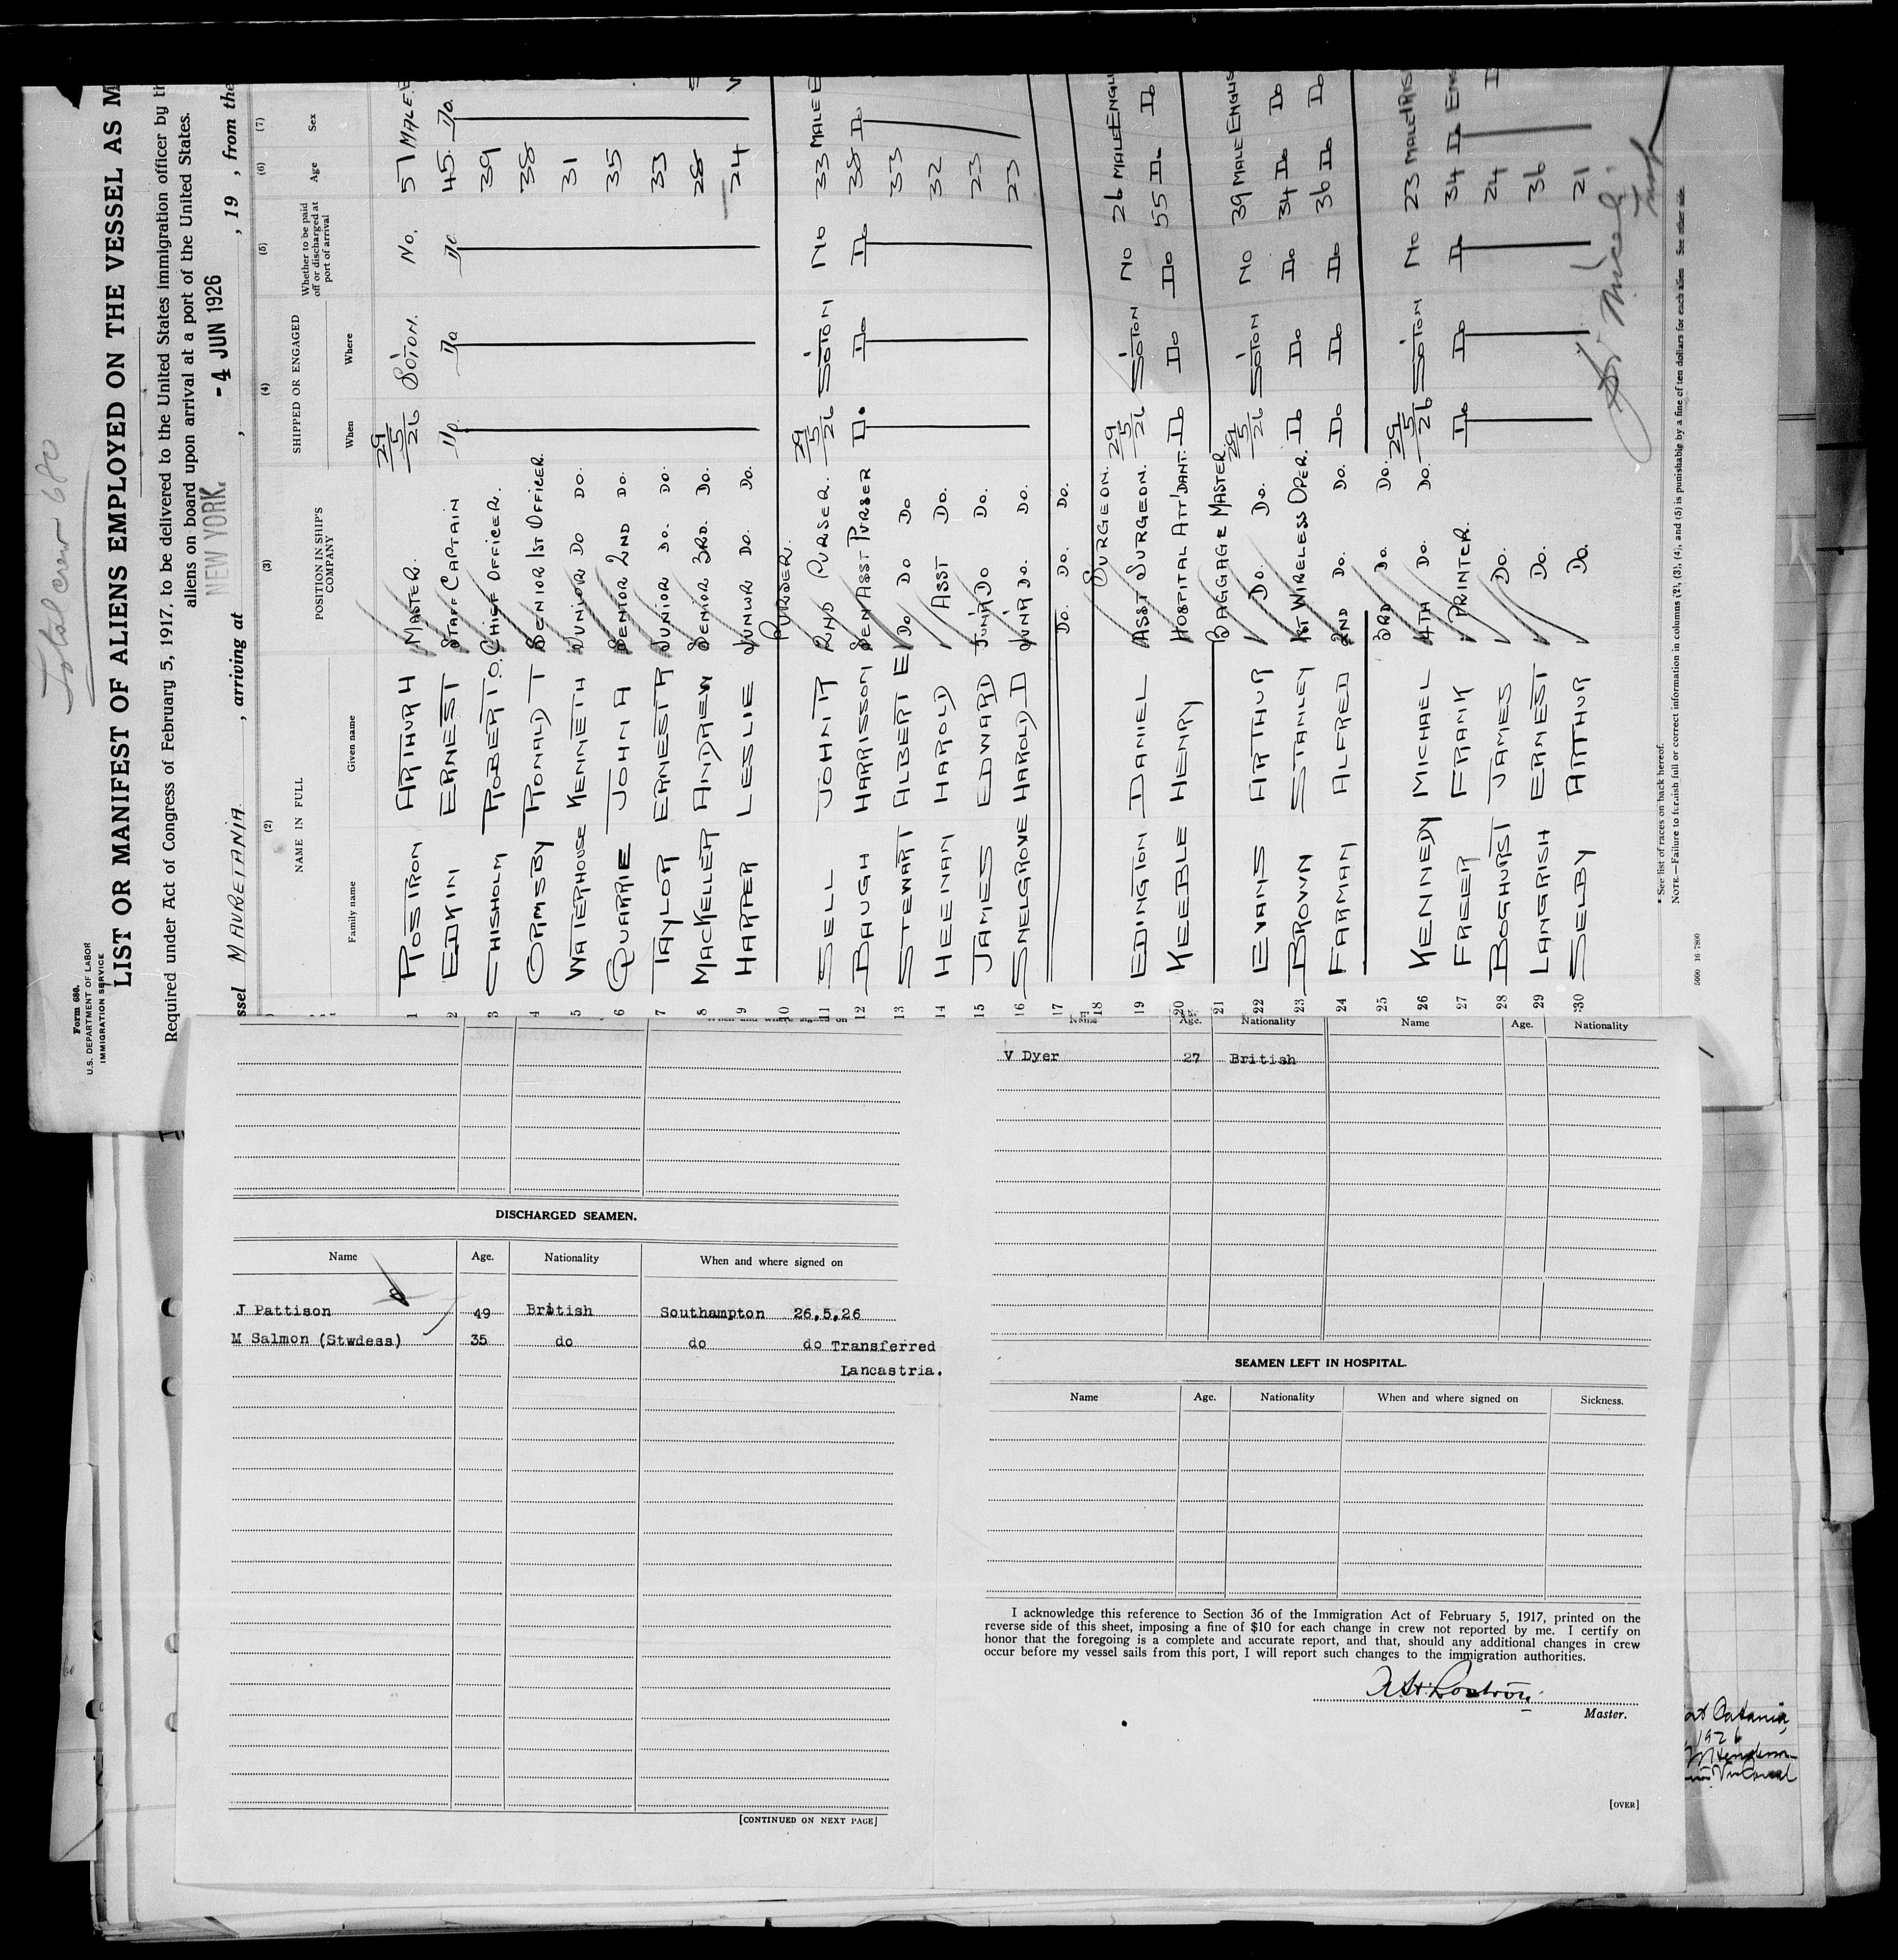 Total crew 680
Form 680.
U.S. DEPARTMENT OF LABOR
IMMIGRATION SERVICE
LIST OR MANIFEST OF ALIENS EMPLOYED ON THE VESSEL AS M
Required under Act of Congress of February 5, 1917, to be delivered to the United States immigration officer by th
aliens on board upon arrival at a port of the United States.
ssel MAURETANIA , arriving at NEW YORK. , -4 JUN 1926 , 19 , from the
(2) (3) (4) (5) (6) (7)
NAME IN FULL POSITION IN SHIP'S COMPANY SHIPPED OR ENGAGED Whether to be paid off or discharged at port of arrival Age Sex
Family name Given name When Where
1 ROSTRON ARTHUR H MASTER. 29/5/26 SO'TON. NO. 57 MALE
2 EDKIN ERNEST STAFF CAPTAIN Do. Do Do. 45. Do.
3 CHISHOLM ROBERT O. CHIEF OFFICER. 39
4 ORMSBY RONALD T SENIOR 1ST OFFICER. 38
5 WATERHOUSE KENNETH JUNIOR DO DO. 31
6 QUARRIE JOHN A SENIOR 2ND DO. 35
7 TAYLOR ERNEST R JUNIOR DO. DO. 33
8 MACKELLER ANDREW SENIOR 3RD. DO. 28
9 HARPER LESLIE JUNIOR DO. DO. 24
10 PURSER.
11 SELL JOHN R 2ND PURSER. 29/5/26 SO'TON NO 33 MALE E
12 BAUGH HARRISSON SEN ASST PURSER Do. Do Do 38 Do
13 STEWART ALBERT E DO DO DO 33
14 HEENAN HAROLD ASST DO. 32
15 JAMES EDWARD JUN'R DO DO. 23
16 SNELGROVE HAROLD D JUN'R DO. DO. 23
17 DO. DO. DO.
18 SURGEON.
19 EDINGTON DANIEL ASST SURGEON. 29/5/26 SO'TON NO 26 MALE ENGLI
20 KEEBLE HENRY HOSPITAL ATT'DANT. Do Do Do 55 Do Do
21 BAGGAGE MASTER.
22 EVANS ARTHUR DO. DO. 29/5/26 SO'TON NO 39 MALE ENGLIS
23 BROWN STANLEY 1ST WIRELESS OPER. Do Do Do 34 Do Do
24 FARMAN ALFRED 2ND DO. DO. Do Do Do 36 Do Do
25 3RD DO. DO.
26 KENNEDY MICHAEL 4TH DO. DO. 29/5/26 SO'TON NO 23 MALE IRIS
27 FREER FRANK PRINTER. Do Do Do 34 Do ENG
28 BOGHURST JAMES DO. 24
29 LANGRISH ERNEST DO. 36
30 SELBY ARTHUR DO. 21
* See list of races on back hereof.
NOTE.—Failure to furnish full or correct information in columns (2), (3), (4), and (5) is punishable by a fine of ten dollars for each alien See other side
When and where signed on
DISCHARGED SEAMEN.
Name Age. Nationality When and where signed on
J Pattison 49 British Southampton 26,5,26
M Salmon (Stwdess) 35 do do do Transferred
Lancastria.
[CONTINUED ON NEXT PAGE]
Name Age. Nationality Name Age. Nationality
V Dyer 27 British
SEAMEN LEFT IN HOSPITAL.
Name Age. Nationality When and where signed on Sickness.
I acknowledge this reference to Section 36 of the Immigration Act of February 5, 1917, printed on the
reverse side of this sheet, imposing a fine of $10 for each change in crew not reported by me. I certify on
honor that the foregoing is a complete and accurate report, and that, should any additional changes in crew
occur before my vessel sails from this port, I will report such changes to the immigration authorities.
A H Rostron
Master.
[OVER]
at Catania,
1926